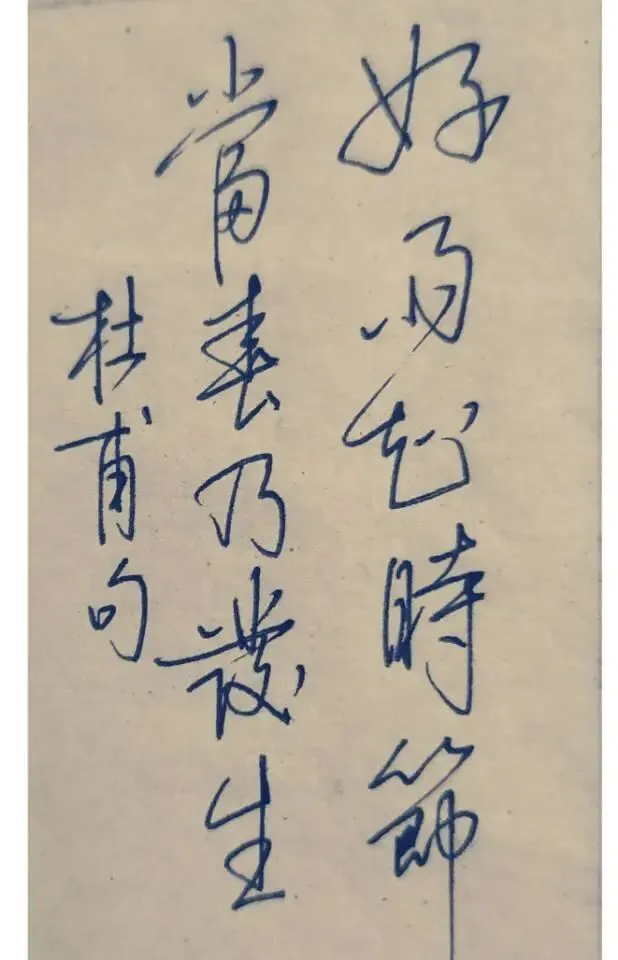 好雨知時節
當春乃發生
杜甫句